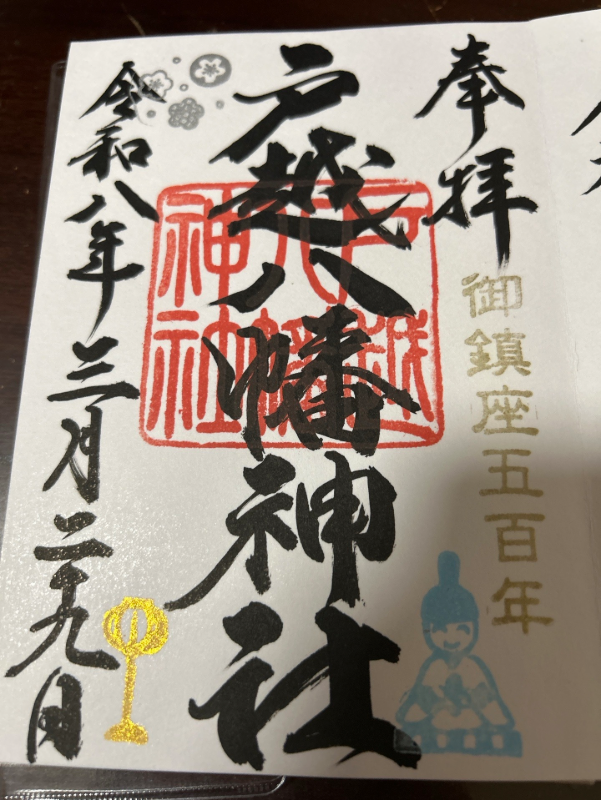 奉拝
御鎮座五百年
戸越八幡神社
戸越
八幡
神社
令和八年三月二十九日